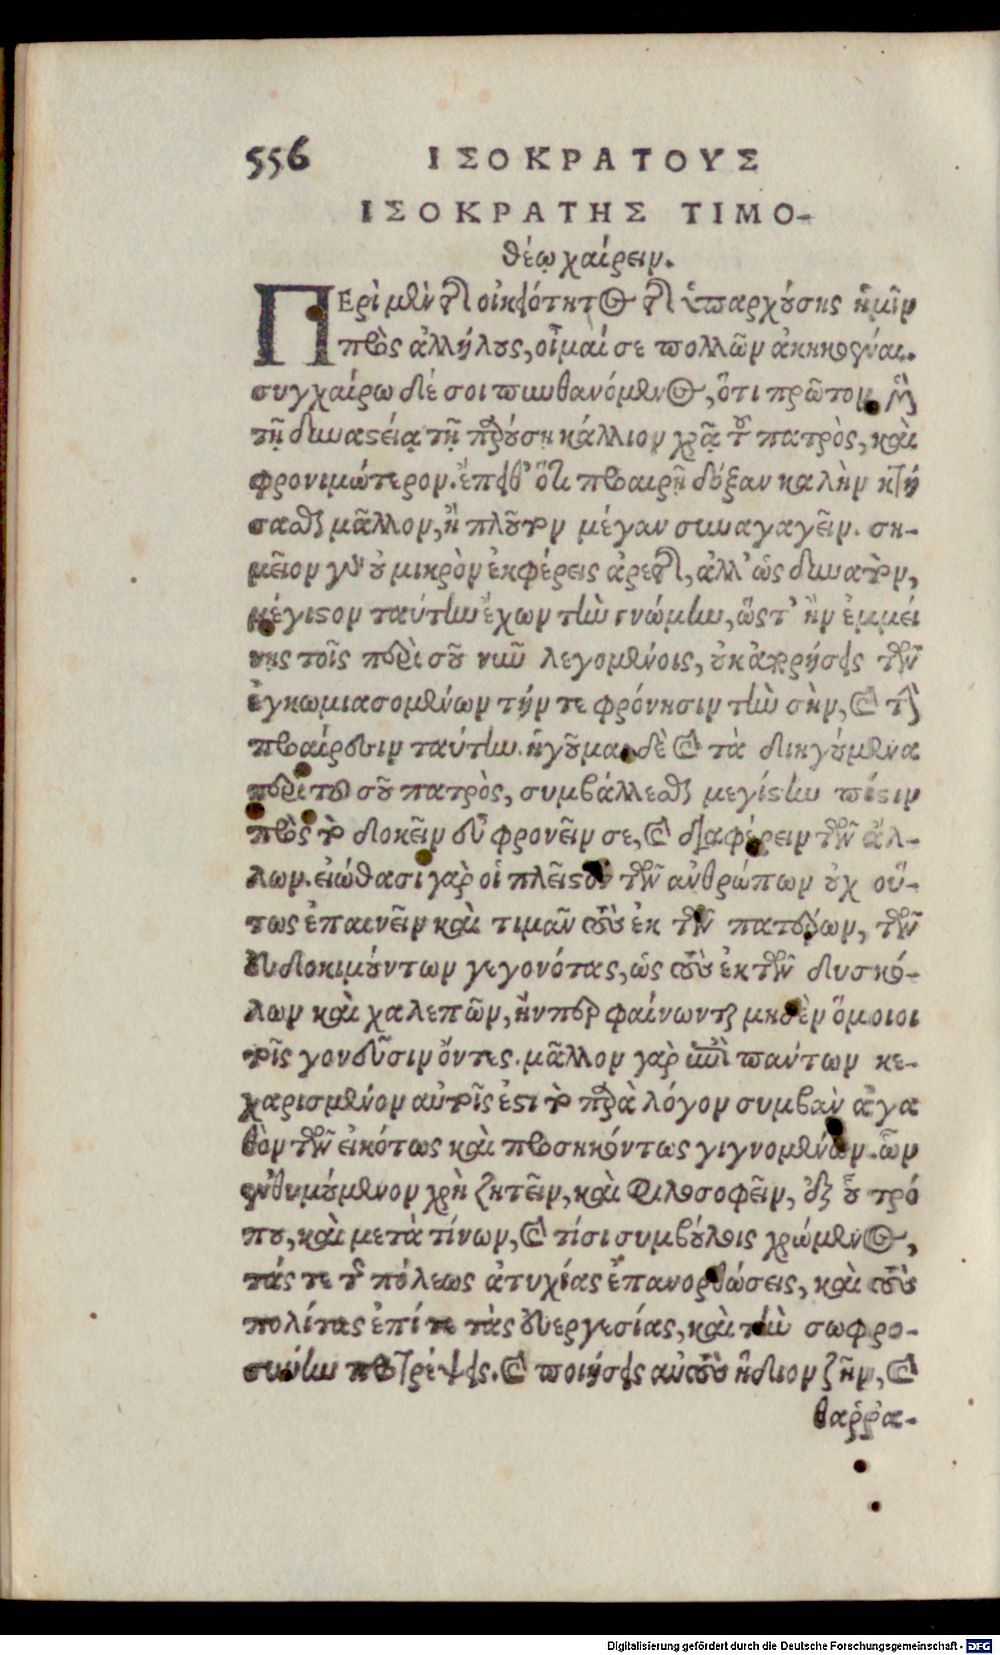 556 ΙΣΟΚΡΑΤΟΥΣ
ΙΣΟΚΡΑΤΗΣ ΤΙΜΟ-
θέῳ χαίρειν.
ΠΕρὶ μὲν τῆς οἰκειότητος τῆς ὑπαρχούσης ἡμῖν
πρὸς ἀλλήλους, οἶμαί σε πολλῶν ἀκηκοέναι.
συγχαίρω δέ σοι πυνθανόμενος, ὅτι πρῶτον μὲν
τῇ δυναστείᾳ τῇ παρούσῃ κάλλιον χρᾷ τοῦ πατρὸς, καὶ
φρονιμώτερον. ἔπειθ' ὅτι προαιρῇ δόξαν καλὴν κτή
σασθαι μᾶλλον, ἢ πλοῦτον μέγαν συναγαγεῖν. ση-
μεῖον γὰρ οὐ μικρὸν ἐκφέρεις ἀρετῆς, ἀλλ' ὡς δυνατὸν,
μέγιστον ταύτην ἔχων τὴν γνώμην, ὥστ' ἢν ἐμμεί
νῃς τοῖς περὶ σοῦ νῦν λεγομένοις, οὐκ ἀπορήσεις τῶν
ἐγκωμιασομένων τήν τε φρόνησιν τὴν σὴν, καὶ τὴν
προαίρεσιν ταύτην. ἡγοῦμαι δὲ καὶ τὰ διηγούμενα
περὶ τοῦ σοῦ πατρὸς, συμβάλλεσθαι μεγίστην πίστιν
πρὸς τὸ δοκεῖν εὖ φρονεῖν σε, καὶ διαφέρειν τῶν ἄλ-
λων. εἰώθασι γὰρ οἱ πλεῖστοι τῶν ἀνθρώπων οὐχ οὕ-
τως ἐπαινεῖν καὶ τιμᾶν τοὺς ἐκ τῶν πατέρων, τῶν
εὐδοκιμούντων γεγονότας, ὡς τοὺς ἐκ τῶν δυσκό-
λων καὶ χαλεπῶν, ἤνπερ φαίνωνται μηδὲν ὅμοιοι
τοῖς γονεῦσιν ὄντες. μᾶλλον γὰρ ἐπὶ πάντων κε-
χαρισμένον αὐτοῖς ἐστι τὸ παρὰ λόγον συμβὰν ἀγα
θὸν τῶν εἰκότως καὶ προσηκόντως γιγνομένων. ὧν
ἐνθυμούμενον χρὴ ζητεῖν, καὶ φιλοσοφεῖν, ἐξ οὗ τρό
που, καὶ μετὰ τίνων, καὶ τίσι συμβούλοις χρώμενος,
τάς τε τῆς πόλεως ἀτυχίας ἐπανορθώσεις, καὶ τοὺς
πολίτας ἐπί τε τὰς εὐεργεσίας, καὶ τὴν σωφρο-
σύνην προτρέψεις. καὶ ποιήσεις αὐτοὺς ἥδιον ζῆν, καὶ
θαῤῥα-
Digitalisierung gefördert durch die Deutsche Forschungsgemeinschaft - DFG